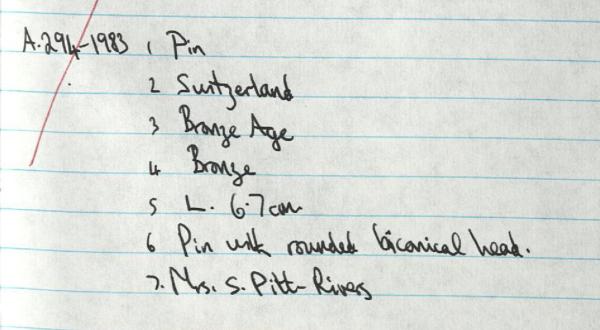 A.294-1983 1 Pin
2 Switzerland
3 Bronze Age
4 Bronze
5 L. 6.7cm
6 Pin with rounded biconical head.
7. Mrs. S. Pitt-Rivers